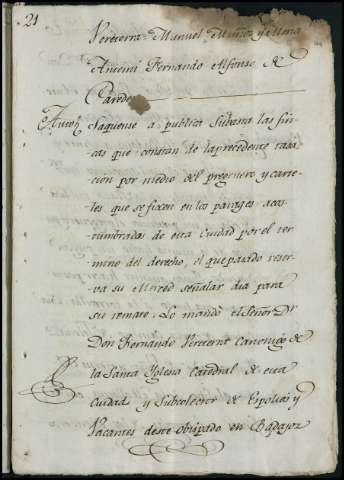 21
Vecerra = Manuel Muñoz y Mena
Antemi Fernando Alfonso de
Paredes
Auto Saquense a publica Subasta las fin-
cas que constan de la precedente tasa-
cion por medio del pregonero y carte-
les que se fixen en los parages acos-
tumbrados de esta Ciudad por el ter-
mino del derecho, el que pasado reser-
va su Merced señalar dia para
su remate. Lo mandò el Señor Dr
Don Fernando Vecerra Canonigo de
la Santa Yglesia Catedral de esta
Ciudad y Subcolector de Espolios y
Vacantes deste obispado en Badajoz